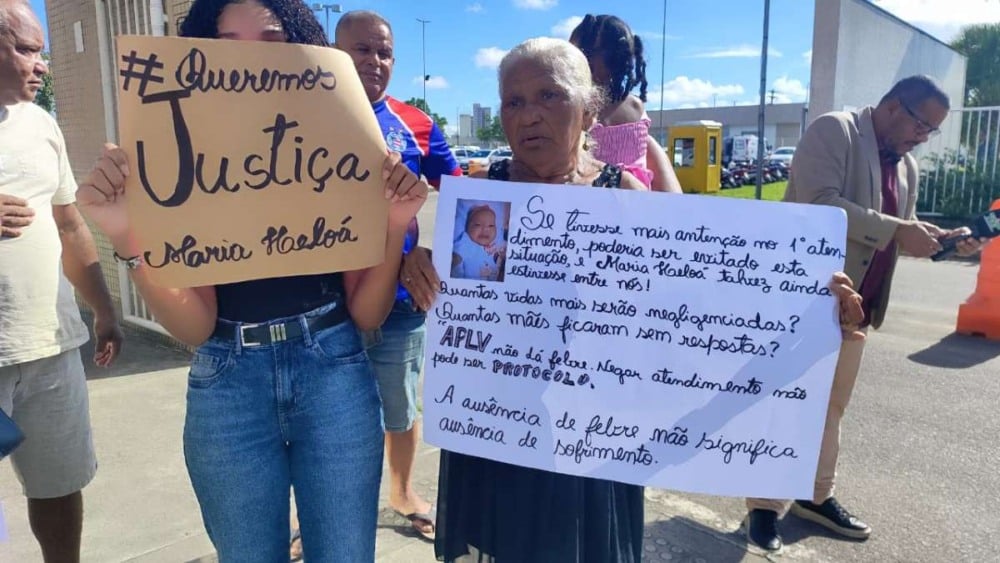 #Queremos
Justiça
Maria Heloá
Se tivesse mais antenção no 1° aten-
dimento, poderia ser evitado esta
situação, e Maria Heloá talvez ainda
estivesse entre nós!
Quantas vidas mais serão negligenciadas?
Quantas mães ficaram sem respostas?
"APLV não dá febre. Negar atendimento não
pode ser PROTOCOLO.
A ausência de febre não significa
ausência de sofrimento.